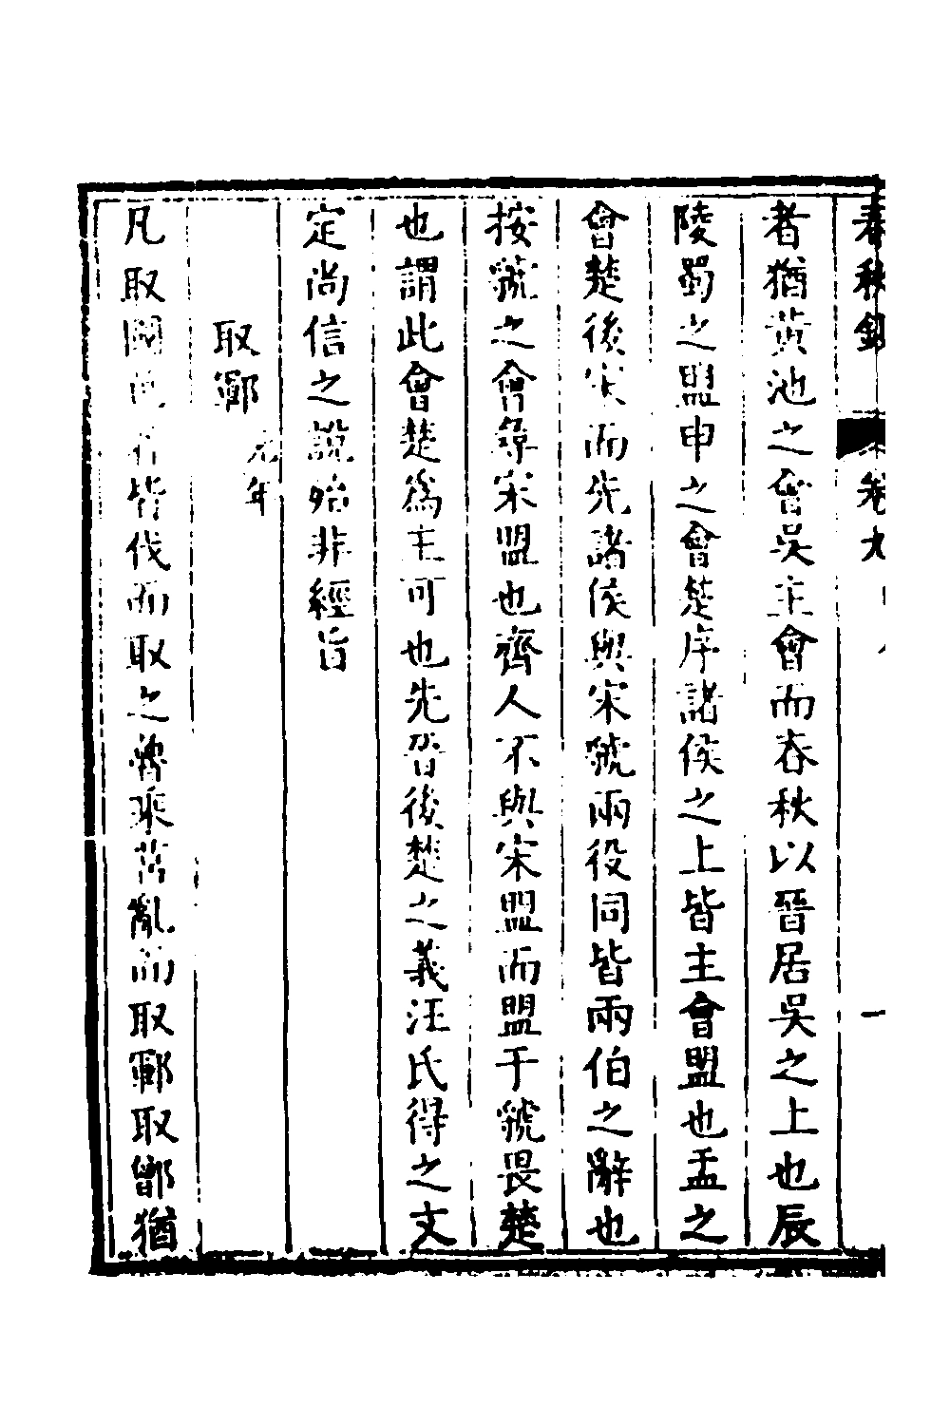 春秋 卷九 一
者猶黃池之會吳主會而春秋以晉居吳之上也辰
陵蜀之盟申之會楚序諸侯之上皆主會盟也盂之
會楚後宋而先諸侯與宋虢兩役同皆兩伯之辭也
按虢之會尋宋盟也齊人不與宋盟而盟于虢畏楚
也謂此會楚爲主可也先晉後楚之義汪氏得之文
定尚信之說殆非經旨
取鄆元年
凡取國邑 皆伐而取之魯乘莒亂而取鄆取鄫猶